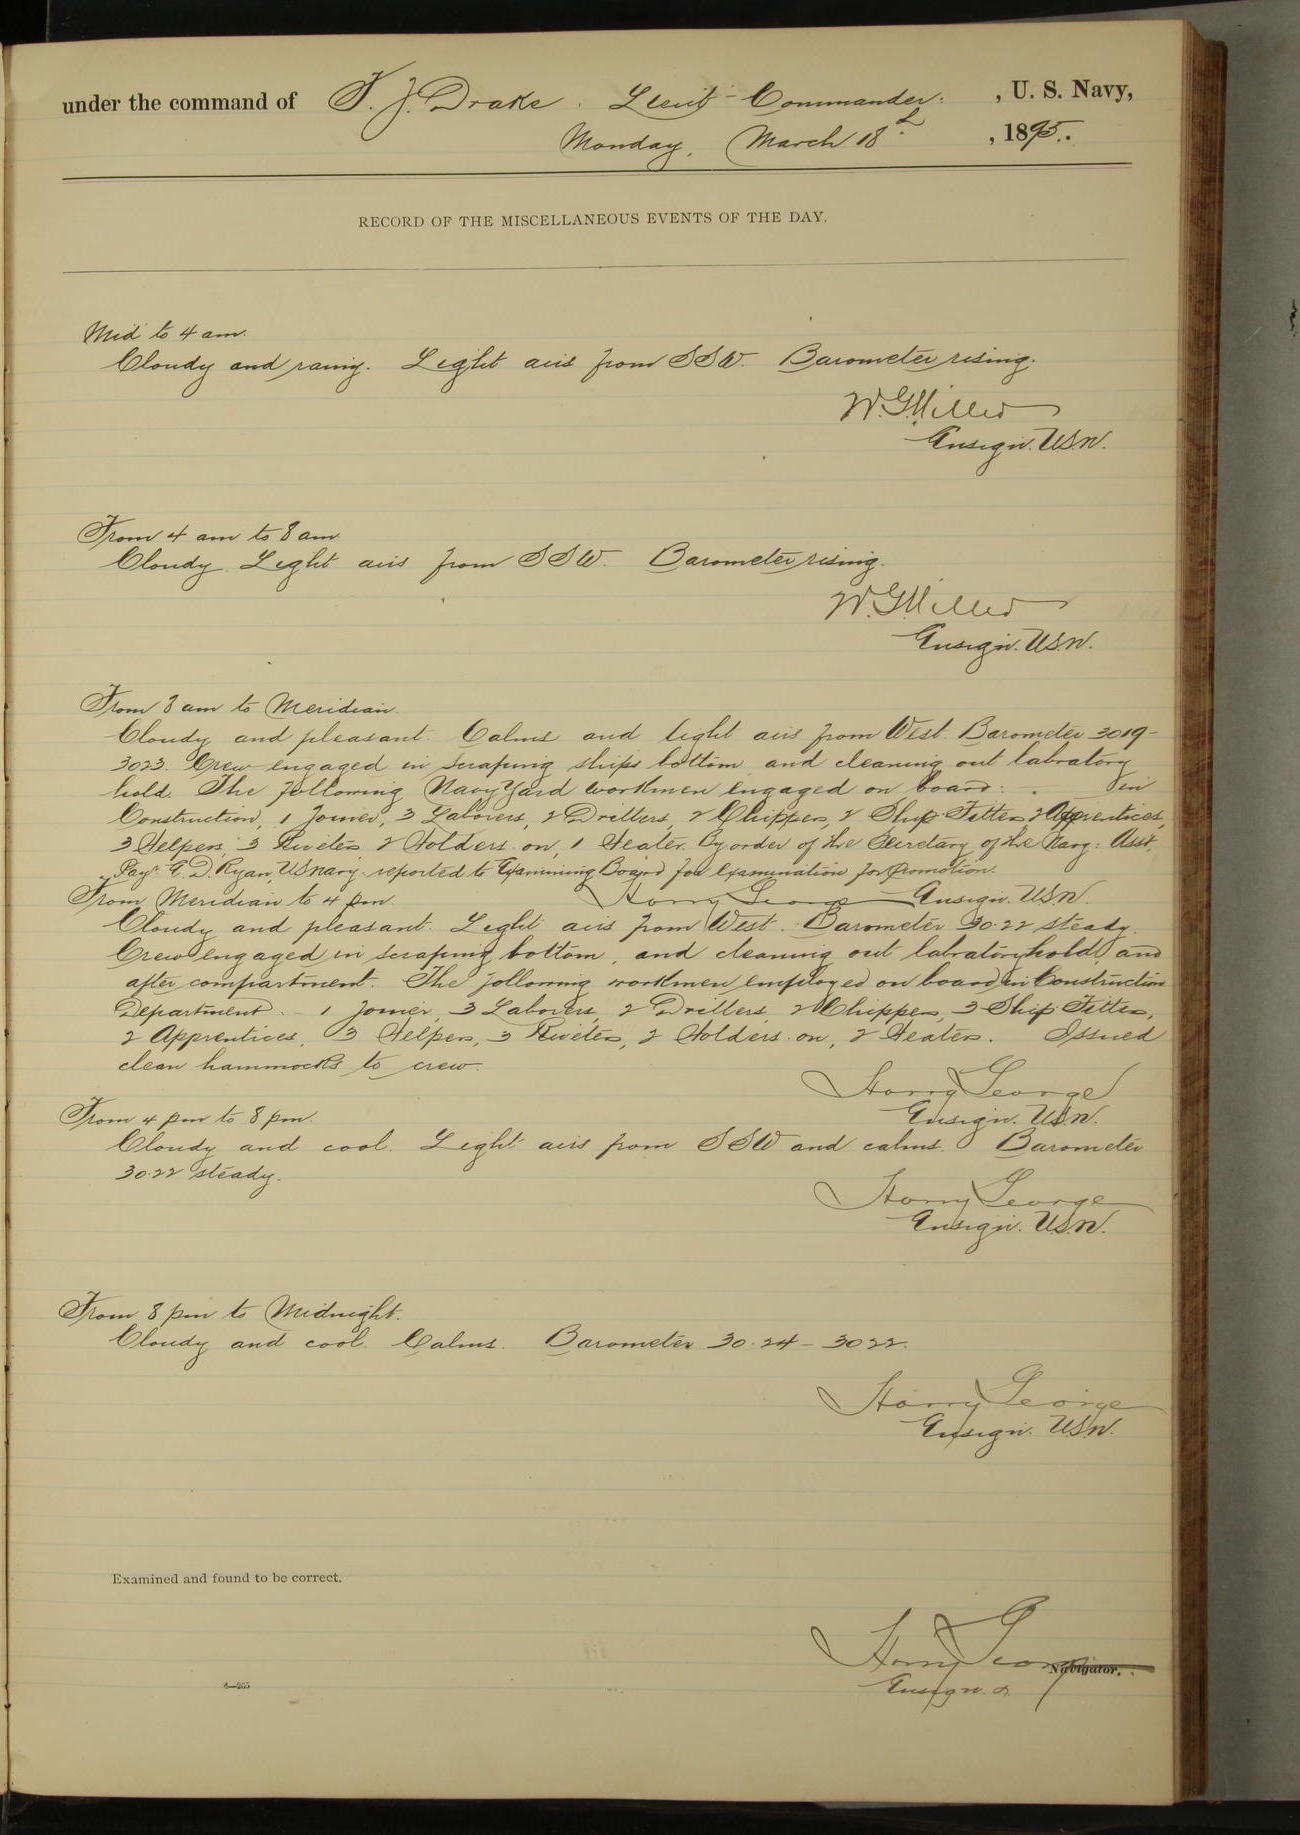 under the command of F. J. Drake. Lieut-Commander. , U. S. Navy,
Monday, March 18th , 1895.
RECORD OF THE MISCELLANEOUS EVENTS OF THE DAY.
Mid to 4 am.
Cloudy and rainy. Light airs from SSW. Barometer rising.
W.G. Miller
Ensign. U.S.N.
From 4 am to 8 am
Cloudy. Light airs from SSW. Barometer rising.
W.G. Miller
Ensign. U.S.N.
From 8 am to Meridian.
Cloudy and pleasant. Calms and light airs from West. Barometer 30.19-
30.23. Crew engaged in scraping ships bottom and cleaning out labratory
hold. The following Navy Yard workmen engaged on board:. in
Construction, 1 Joiner, 3 Laborers, 2 Drillers, 2 Chippers, 2 Ship Fitters 2 Apprentices,
3 Helpers, 3 Riveters 2 Holders on, 1 Heater. By order of the Secretary of the Navy: Asst.
Payr G. D. Ryan, USNavy. reported to Examining Board for examination for promotion.
Harry George Ensign. U.S.N.
From Meridian to 4 pm.
Cloudy and pleasant. Light airs from West. Barometer 30.22 steady.
Crew engaged in scraping bottom, and cleaning out labratory hold, and
after compartment. The following workmen employed on board in Construction
Department. - 1 Joiner, 3 Laborers, 2 Drillers, 2 Chippers, 3 Ship Fitters,
2 Apprentices, 3 Helpers, 3 Riveters, 2 Holders on, 2 Heaters. Issued
clean hammocks to crew.
Harry George
Ensign. U.S.N.
From 4 pm to 8 pm.
Cloudy and cool. Light airs from SSW and calms. Barometer
30.22 steady.
Harry George
Ensign. U.S.N.
From 8 pm to Midnight.
Cloudy and cool. Calms. Barometer 30.24 - 30.22.
Harry George
Ensign. U.S.N.
Examined and found to be correct.
Harry George
Navigator.
Ensign